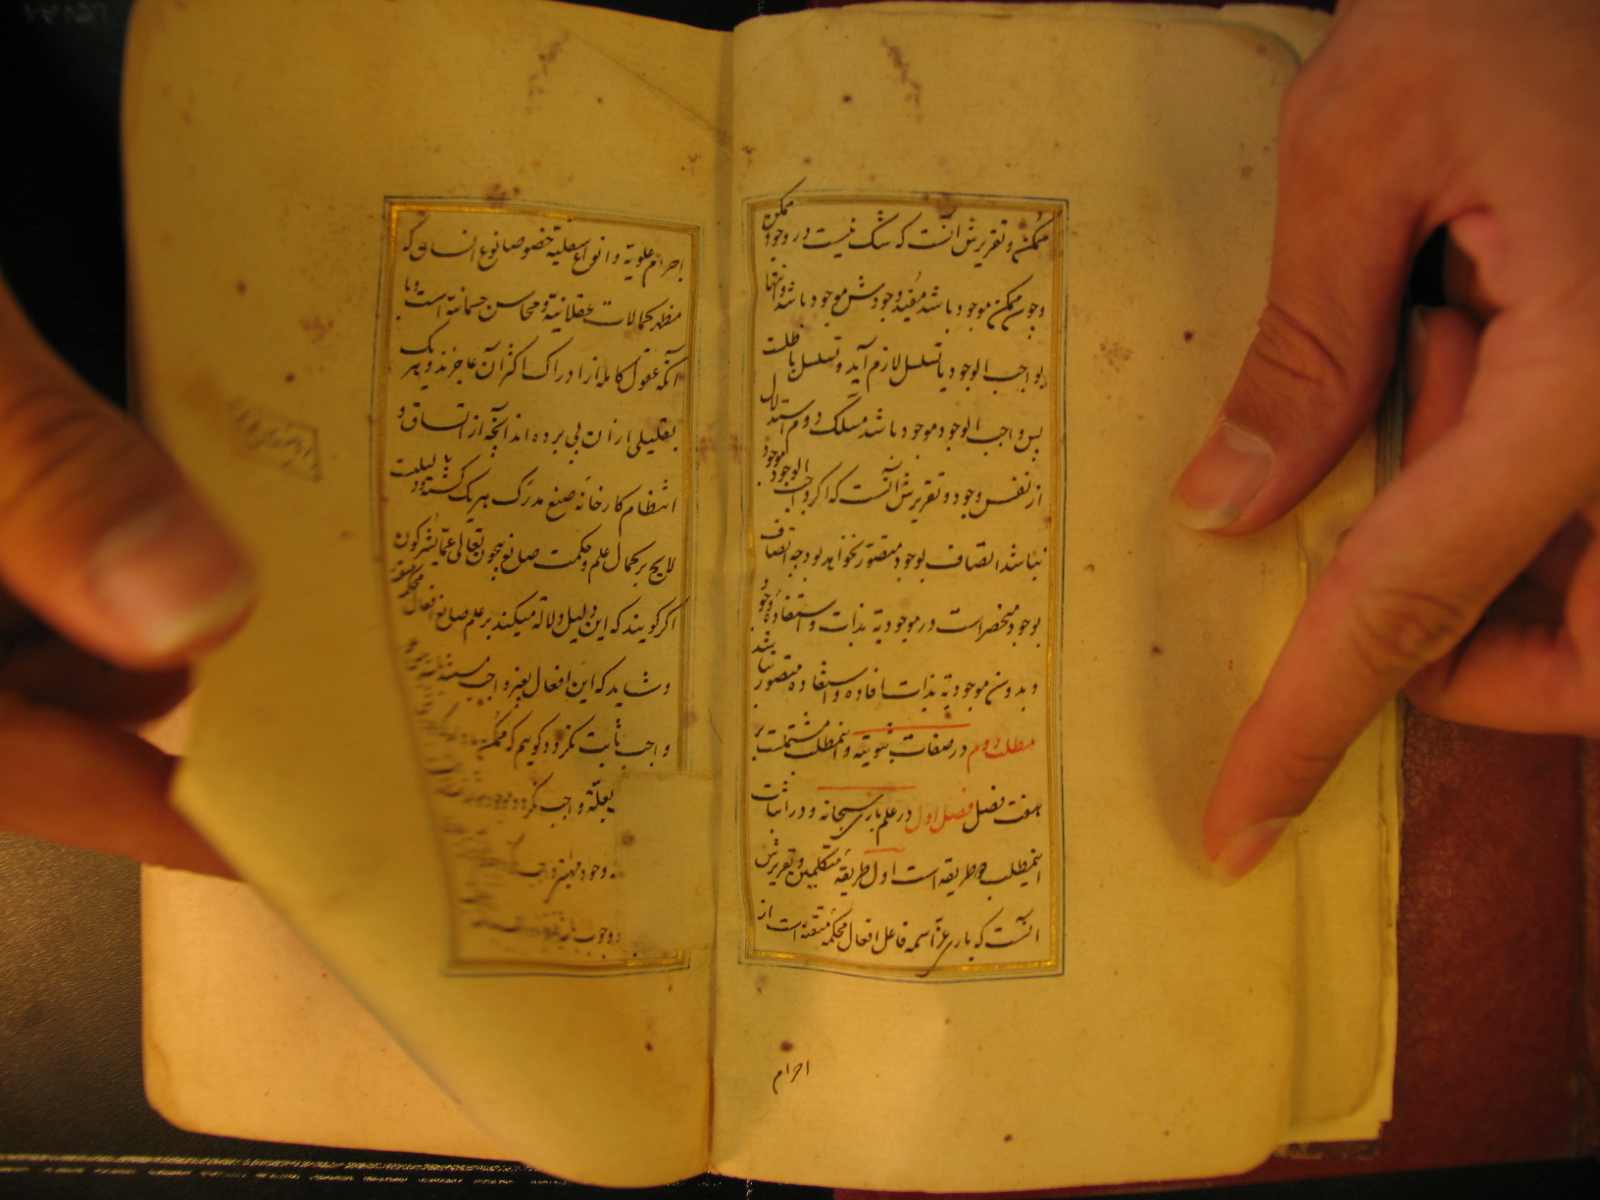 ممکن و تقریرش آنست که شک نیست در وجود ممکن
و چون ممکن موجود باشد مفید وجودش موجود باشد و منتها
بواجب الوجود یا تسلسل لازم آید و تسلسل باطلست
پس واجب الوجود موجود باشد مسلک دوم استدلال
از نفس وجود و تقریرش آنست که اگر واجب الوجود موجود
نباشد اتصاف بوجود متصور نخواهد بود چه اتصاف
بوجود منحصر است در موجودیة بذات و استفاده وجود
و بدون موجودیة بذات افاده و استفاده متصور نباشد
مطلب دوم در صفات ثبوتیه و اینمطلب مشتملست بر
هفت فصل فصل اول در علم باری سبحانه و در اثبات
اینمطلب دو طریقه است اول طریقهٔ متکلمین و تقریرش
آنست که باری عز اسمه فاعل افعال محکمه متقنه است از
اجرام
اجرام علویة و انواع سفلیة خصوصا نوع انسان که
مظهر کمالات عقلانیة و محاسن جسمانیة است و با
آنکه عقول کامله از ادراک اکثر آن عاجزند و هر یک
بقلیلی از ان پی برده اند آنچه از اتساق و
انتظام کارخانه صنع مدرک هر یک گشته دلیلیست
لایح بر کمال علم و حکمت صانع بیچون تعالی عما یشرکون
اگر گویند که این دلیل دلالة میکند بر علم صانع افعال محکمه متقنه
و شاید که این افعال بغیر واجب مستند
واجب ثابت نگردد گویم که ممکن
بعلة واجب نگردد
وجود
وجوب